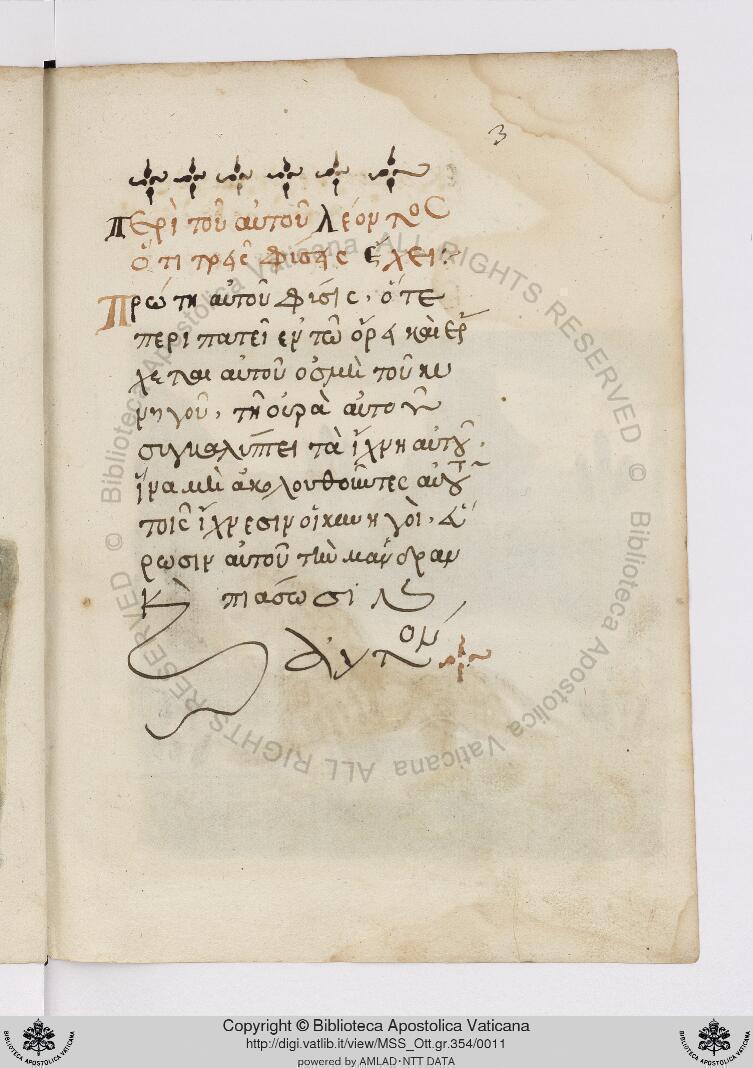 3
Περὶ τοῦ αὐτοῦ λέοντος
Ὅτι τρεῖς φίσης ἔχει:~
Πρώτη αὐτοῦ φίσις, ὅτε
περιπατεῖ ἐν τῶ ὄρη καὶ ἔρ
χεται αὐτοῦ ὀσμὴ τοῦ κυ
νηγοῦ, τῆ οὐρὰ αὐτοῦ
συγκαλύπτει τὰ ἴχνη αὐτοῦ.
ἵνα μὴ ἀκολουθοῦντες αὐτοῦ
τοῖς ἴχνεσιν οἱ κυνηγοὶ, εὕ
ρωσιν αὐτοῦ τὴν μάνδραν
κὶ πιάσωσι
αὐτόν
© Biblioteca Apostolica Vaticana ALL RIGHTS RESERVED © Biblioteca Apostolica Vaticana ALL RIGHTS RESERVED
Copyright © Biblioteca Apostolica Vaticana
http://digi.vatlib.it/view/MSS_Ott.gr.354/0011
powered by AMLAD·NTT DATA
BIBLIOTECA APOSTOLICA VATICANA
BIBLIOTECA APOSTOLICA VATICANA